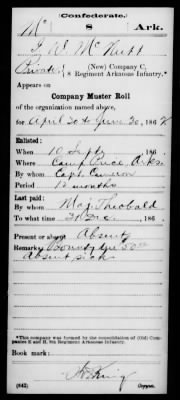 Confederate.
Mc 8 Ark.
J. W. McNutt
Private, (New) Company C,
8 Regiment Arkansas Infantry.*
Appears on
Company Muster Roll
of the organization named above,
for April 30 to June 30, 1862
Enlisted:
When 10 Sept, 186 .
Where Camp Price, Arks.
By whom Capt. Cameron
Period 12 months
Last paid:
By whom Maj. Theobald
To what time 31 Dec, 186 .
Present or absent Absent
Remarks: Bounty due 50.00
absent sick
*This company was formed by the consolidation of (Old) Companies E and H, 8th Regiment Arkansas Infantry.
Book mark:
(642) Copyist.